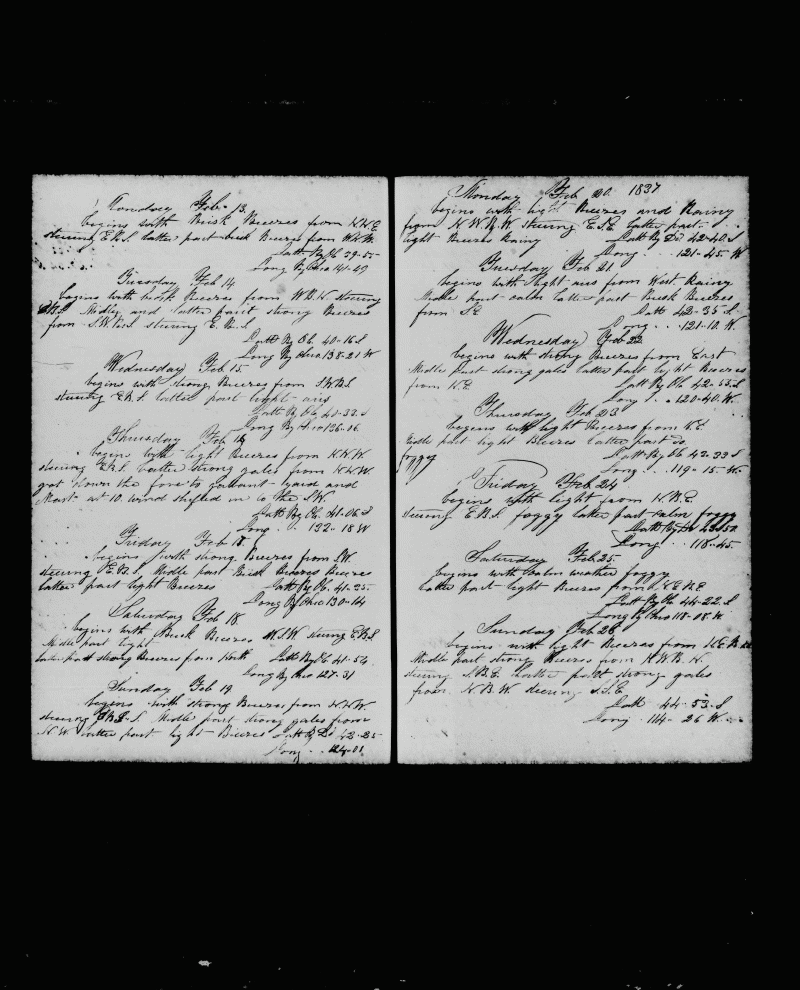 Monday Feb 13
begins with Brisk Breezes from N.N.E
steering E.B.S. latter part brisk Breezes from N.N.W.
Latt By Ob 39-55-
Long By Chro 141-49
Tuesday Feb 14
begins with brisk Breezes from W.B.N. steering
E.B.S. Midle and latter part strong Breezes
from S.W. steering E.B.S
Latt By Ob. 40-16 S
Long By Chro 138-21 W
Wednesday Feb 15
begins with strong Breezes from S.W.B.S
steering E.B.S. latter part light airs
Latt By Ob 40-33-S
Long By Chro 136-16
Thursday Feb 16
begins with light Breezes from N.N.W
steering E.B.S. latter strong gales from N.N.W.
got down the fore to gallant yard and
Mast at 10. wind shifted in to the S.W
Latt By Ob. 41-06 S
Long . . 132-18 W
Friday Feb 17.
begins with strong Breezes from S.W.
steering E.B.S. Midle part Brisk Breezes
latter part light Breezes Latt By Ob. 41-25-
Long By Chro 130-14
Saturday Feb 18.
begins with Brisk Breezes W.S.W. steering E.B.S
Midle part light
latter part strong Breezes from North Latt By Ob 41-54
Long By Chro 127-31
Sunday Feb 19
begins with strong Breezes from N.N.W.
steering E.B.S. Midle part strong gales from
N.W. latter part light Breezes Latt By D 42-25
Long . . 124-01
Monday Feb 20. 1837
begins with light Breezes and Rainy
from N.W.B.W. steering E.S.E latter part
light Breezes Rainy Latt By D 42-40. S
Long . . 121-45. W
Tuesday Feb 21
begins with light airs from West. Rainy
Midle part calm latter part brisk Breezes
from S.E Latt 42-35 S.
Long . . 121-10. W.
Wednesday Feb 22
begins with strong Breezes from East
Midle part strong gales latter part light Breezes
from N.E. Latt By Ob 42-53 S
Long . . 120-40. W.
Thursday Feb 23
begins with light Breezes from N.E
Midle part light Breezes latter part do
foggy Latt By Ob 43-33 S
Long . . 119-15- W.
Friday Feb 24
begins with light from N.B.E.
steering E.B.S. foggy latter part calm foggy
Latt By
Long . . 118-45.
Saturday Feb 25.
begins with calm weather foggy
latter part light Breezes from N.E.
Latt By Ob 44-22. S
Long by Chro 118-08. W
Sunday Feb 26
begins with light Breezes from
Midle part strong Breezes from N.W.B. N.
steering S.B.E. latter part strong gales
from N.B.W. steering S.S.E
Latt 44-53. S
Long . 114-26 W.